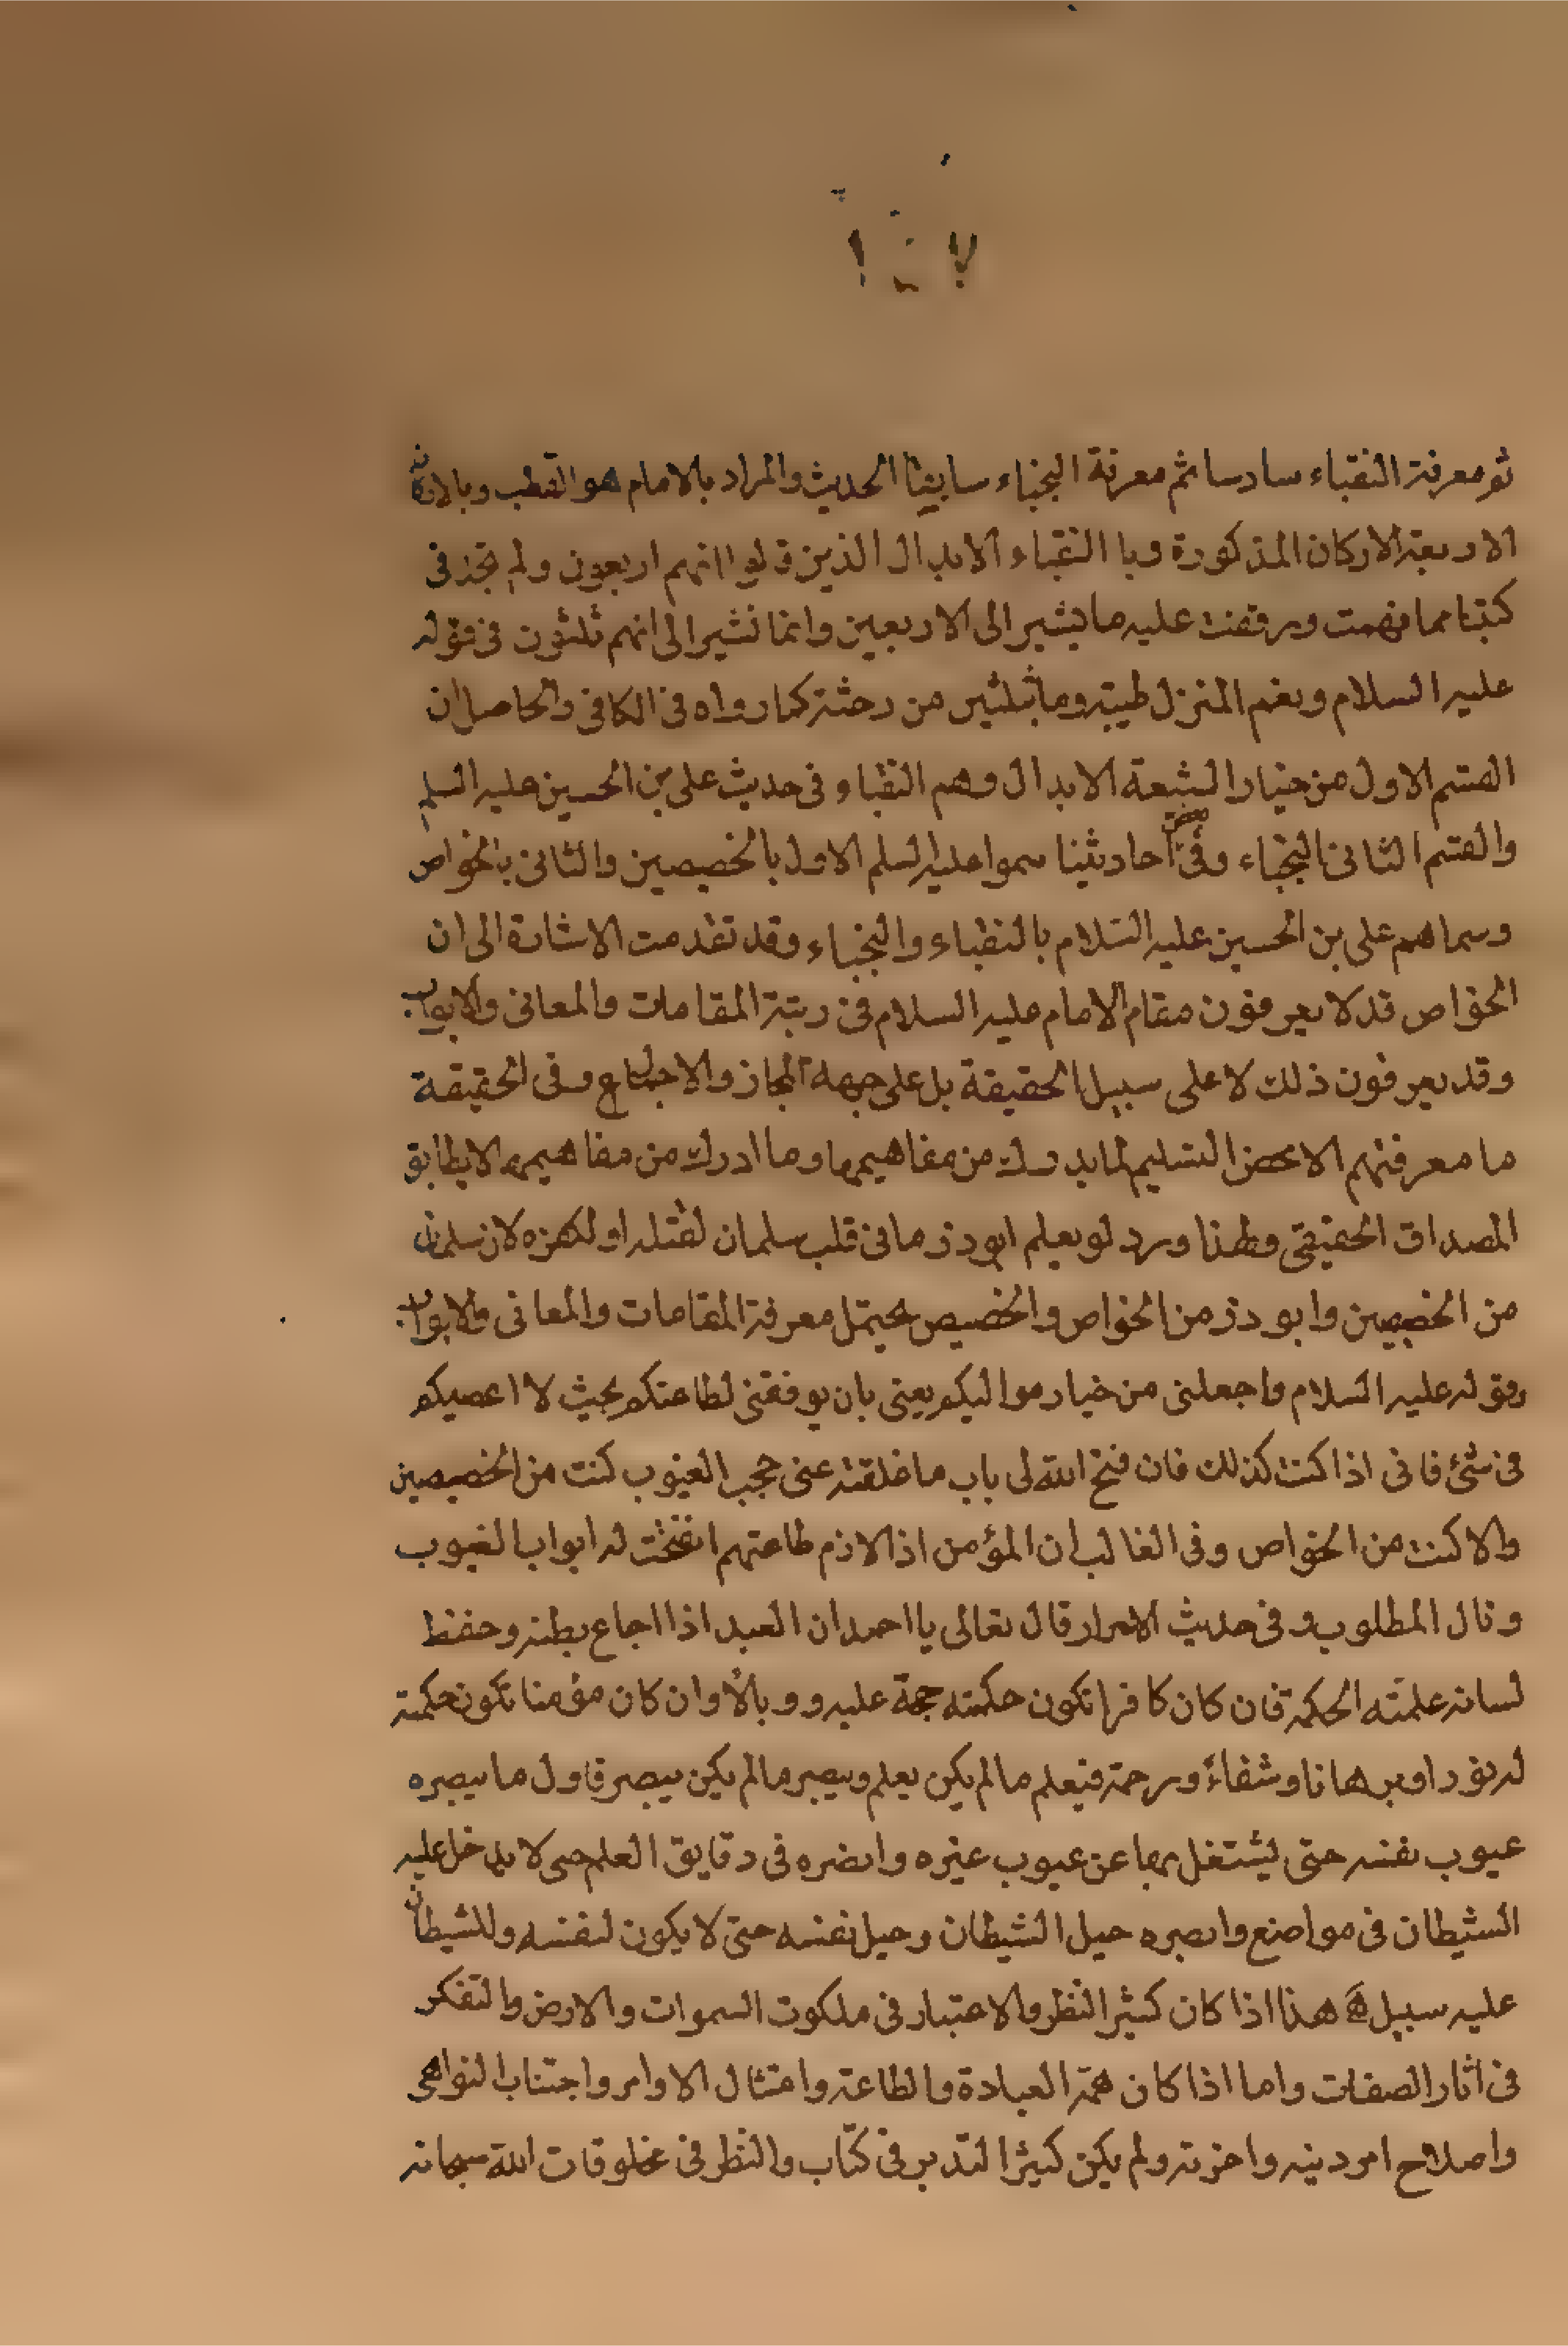 ثم معرفة النقباء سادسا ثم معرفة النجباء سابعا الحديث والمراد بالامام هو القطب وبالاركان
الاربعة الاركان المذكورة وبا النقباء الابدال الذين قالوا انهم اربعون ولم نجد فى
كتبنا مما فهمت ووقفت عليه ما يشير الى الاربعين وانما نشير الى انهم ثلثون فى قوله
عليه السلام ونعم المنزل طيبة وما بثلثين من وحشة كما رواه فى الكافى والحاصل ان
القسم الاول من خيار الشيعة الابدال وهم النقباء فى حديث على بن الحسين عليه السلم
والقسم الثانى النجباء وفى بعض احاديثنا سموا عليهم السلم الاول بالخصيصين والثانى بالخواص
وسماهم على بن الحسين عليه السلام بالنقباء والنجباء وقد تقدمت الاشارة الى ان
الخواص قد لا يعرفون مقام الامام عليه السلام فى رتبة المقامات والمعانى والابواب
وقد يعرفون ذلك لا على سبيل الحقيقة بل على جهة المجاز والاجماع وفى الحقيقة
ما معرفتهم الا محض التسليم لما يدرك من مفاهيمها وما ادرك من مفاهيمها لا يطابق
المصداق الحقيقى ولهذا ورد لو يعلم ابوذر ما فى قلب سلمان لقتله او لكفره لان سلمان
من الخصيصين وابو ذر من الخواص والخصيص يحتمل معرفة المقامات والمعانى والابواب
وقوله عليه السلام واجعلنى من خيار مواليكم يعنى بان يوفقنى لطاعتكم بحيث لا اعصيكم
فى شئ فانى اذا كنت كذلك فان فتح الله لى باب ما غلقته عنى حجب الغيوب كنت من الخصيصين
والا كنت من الخواص وفى الغالب ان المؤمن اذا لازم طاعتهم انفتحت له ابواب الغيوب
ونال المطلوب وفى حديث الاسرار قال تعالى يا احمد ان العبد اذا اجاع بطنه وحفظ
لسانه علمته الحكمة فان كان كافرا تكون حكمته حجة عليه ووبالا وان كان مؤمنا تكون حكمته
له نورا وبرهانا وشفاءً ورحمة فيعلم ما لم يكن يعلم ويبصر ما لم يكن يبصر فاول ما يبصره
عيوب نفسه حتى يشتغل بها عن عيوب غيره وابصره فى دقايق العلم حتى لا يدخل عليه
الشيطان فى مواضع وابصره حيل الشيطان وحيل نفسه حتى لا يكون لنفسه وللشيطان
عليه سبيل هذا اذا كان كثير النظر والاعتبار فى ملكوت السموات والارض والتفكر
فى اثار الصفات واما اذا كان همّه العبادة والطاعة وامتثال الاوامر واجتناب النواهى
واصلاح امر دينه واخرته ولم يكن كثير التدبر فى كتاب والنظر فى مخلوقات الله سبحانه